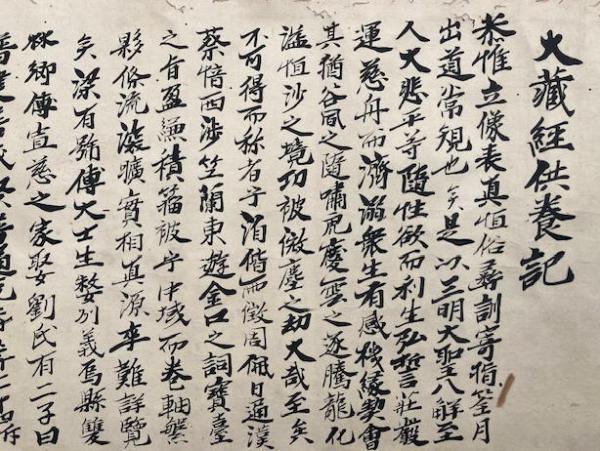 大藏經供養記
恭惟立像表真恒俗尋訓寄指筌月
出道常規也矣是以三明大聖八解至
人大悲平等隨性欲而利生弘誓莊嚴
運慈舟而濟溺眾生有感機緣契會
其猶谷風之隨嘯虎慶雲之逐騰龍化
溢恒沙之境功被微塵之劫大哉至矣
不可得而称者乎洎偕而徵周佩日通漢
蔡愔西涉竺蘭東遊金口之詞寶臺
之旨盈縑積籀被乎中域而卷軸槃
夥條流深曠實相真源卒難詳覽
矣梁有號傅大士生婺州義烏縣雙
林鄉傅宣慈之家娶劉氏有二子曰